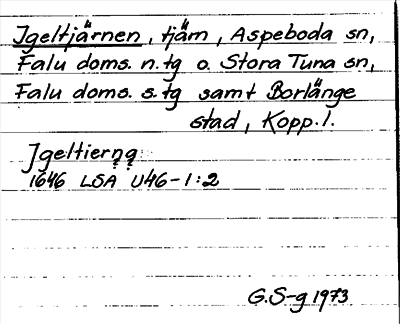 Igeltjärnen, tjärn, Aspeboda sn,
Falu doms. n. tg o. Stora Tuna sn,
Falu doms. s. tg samt Borlänge
stad, Kopp. l.
Jgeltierņą
1646 LSA U46-1:2
G.S-g 1973